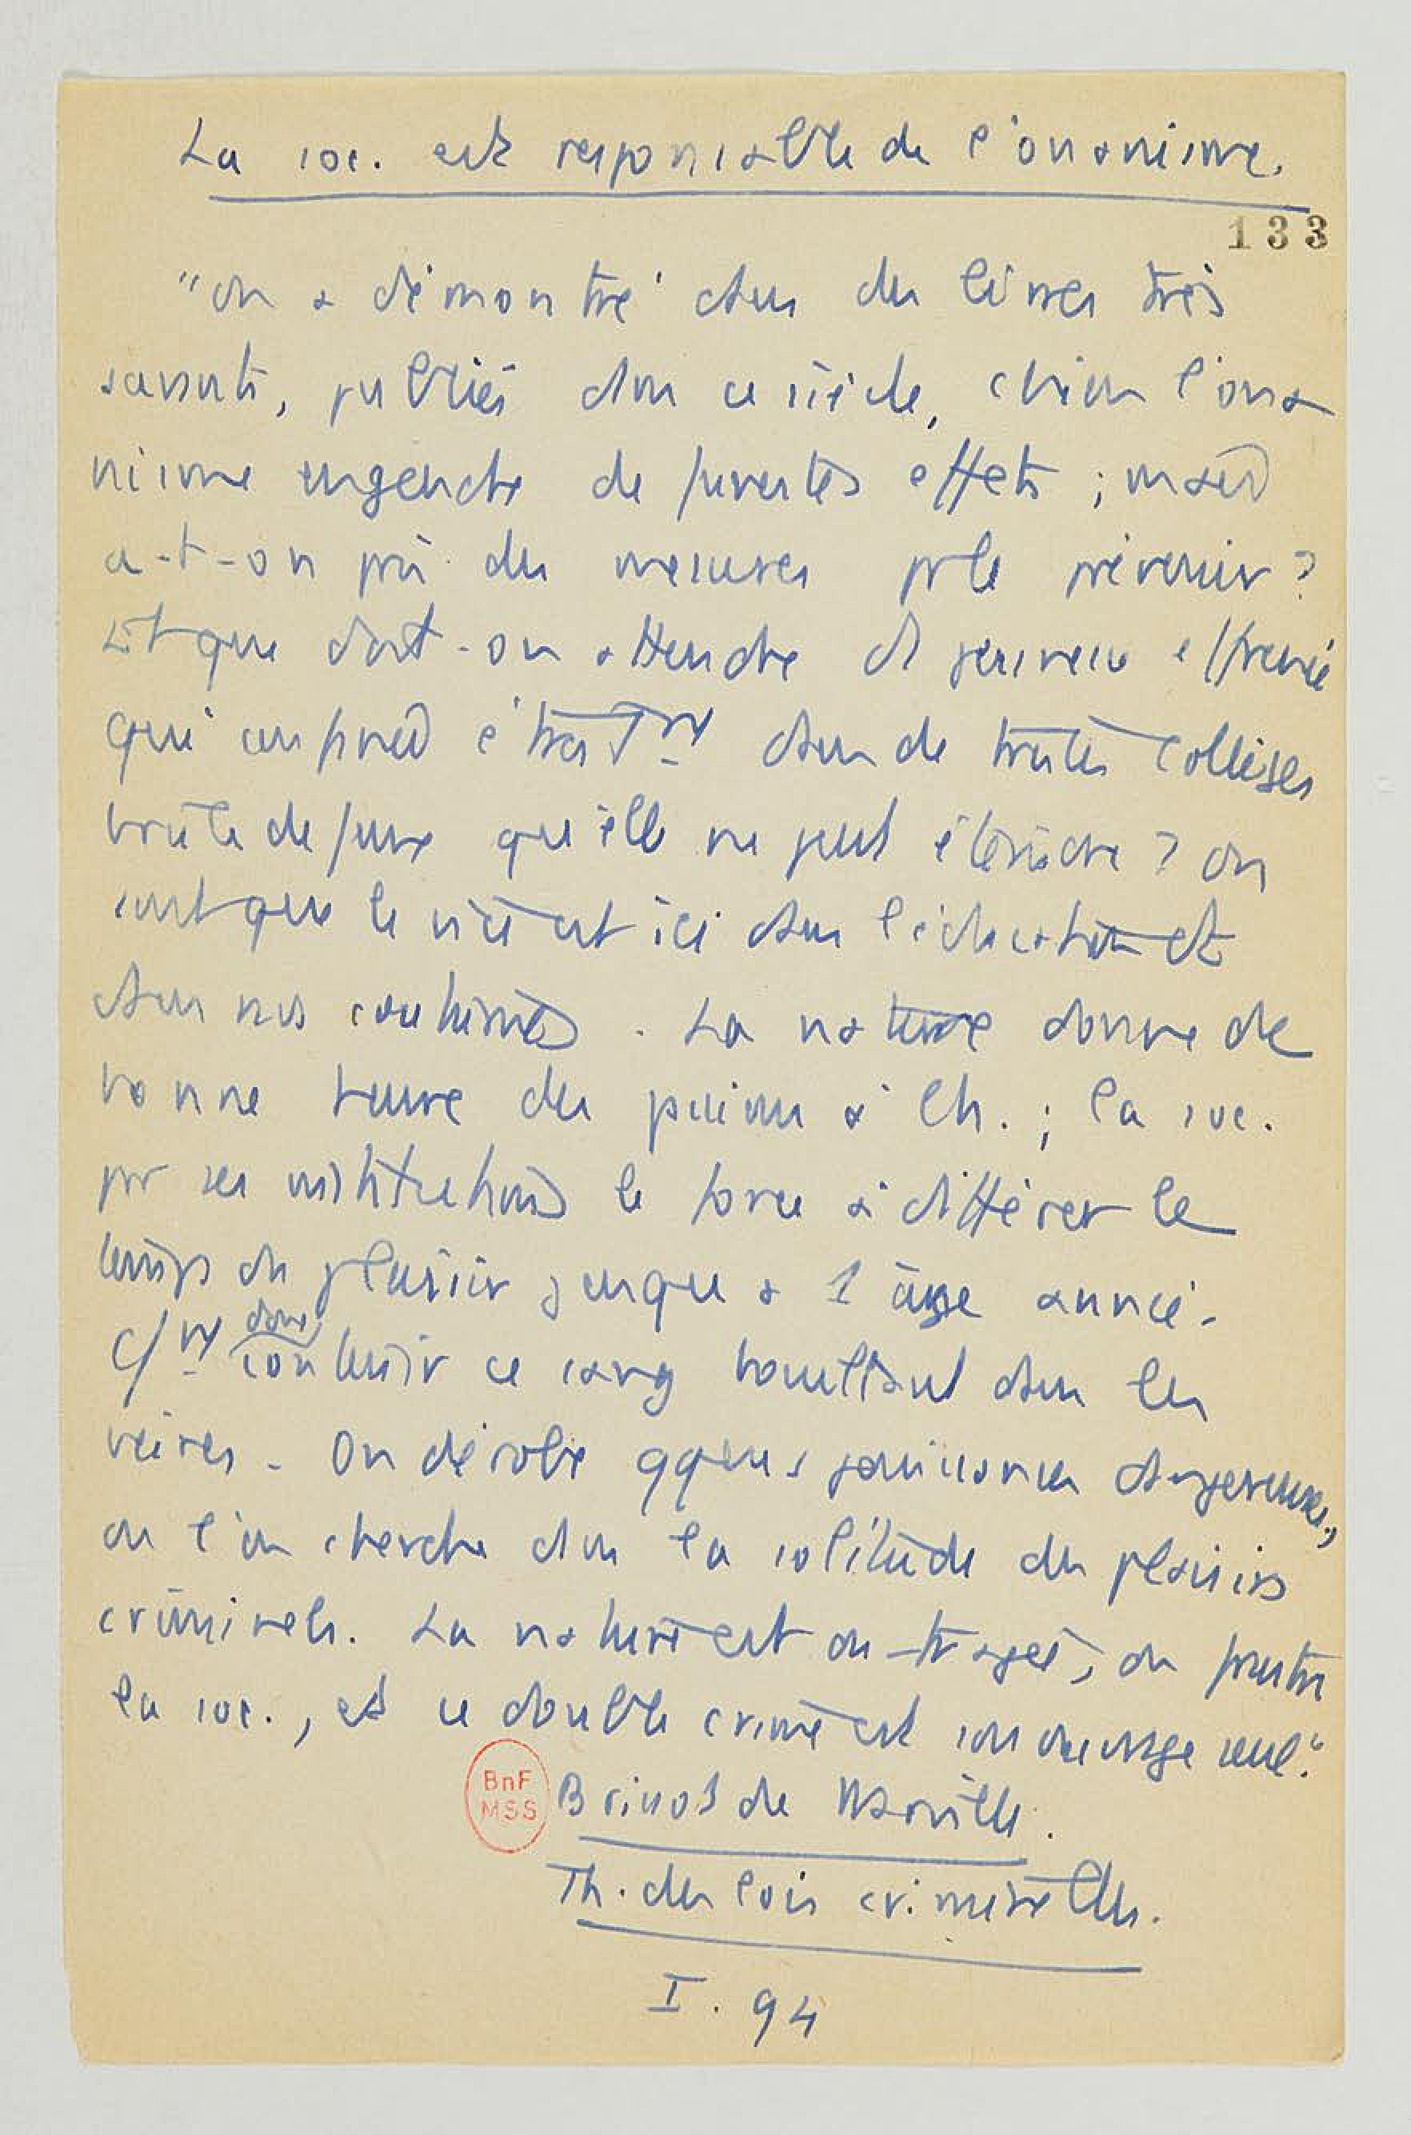 La soc. est responsable de l'onanisme.
133
"On a démontré dans des livres très
savants, publiés dans ce siècle, combien l'ona
nisme engendre de funestes effets ; mais
a-t-on pris des mesures pr le prévenir ?
Et que doit-on attendre d' jeunesse effrénée
qui
dans de tristes collèges
brûle de feux qu'elle ne peut éteindre ? On
sent que le vice est ici dans l'éducation et
dans nos coutumes. La nature donne de
bonne heure des passions à l'h. ; la soc.
par ses institutions le force à différer le
temps du plaisir jusqu'a 1 âge avancé.
donc
contenir ce sang bouillant dans les
veines. On dérobe qques jouissances dangereuses,
ou l'on cherche dans la solitude des plaisirs
criminels. La nature est outragée, on frustre
la soc., et ce double crime est son ouvrage seul."
BnF
MSS
Brissot de Warville.
Th. des lois criminelles.
I. 94